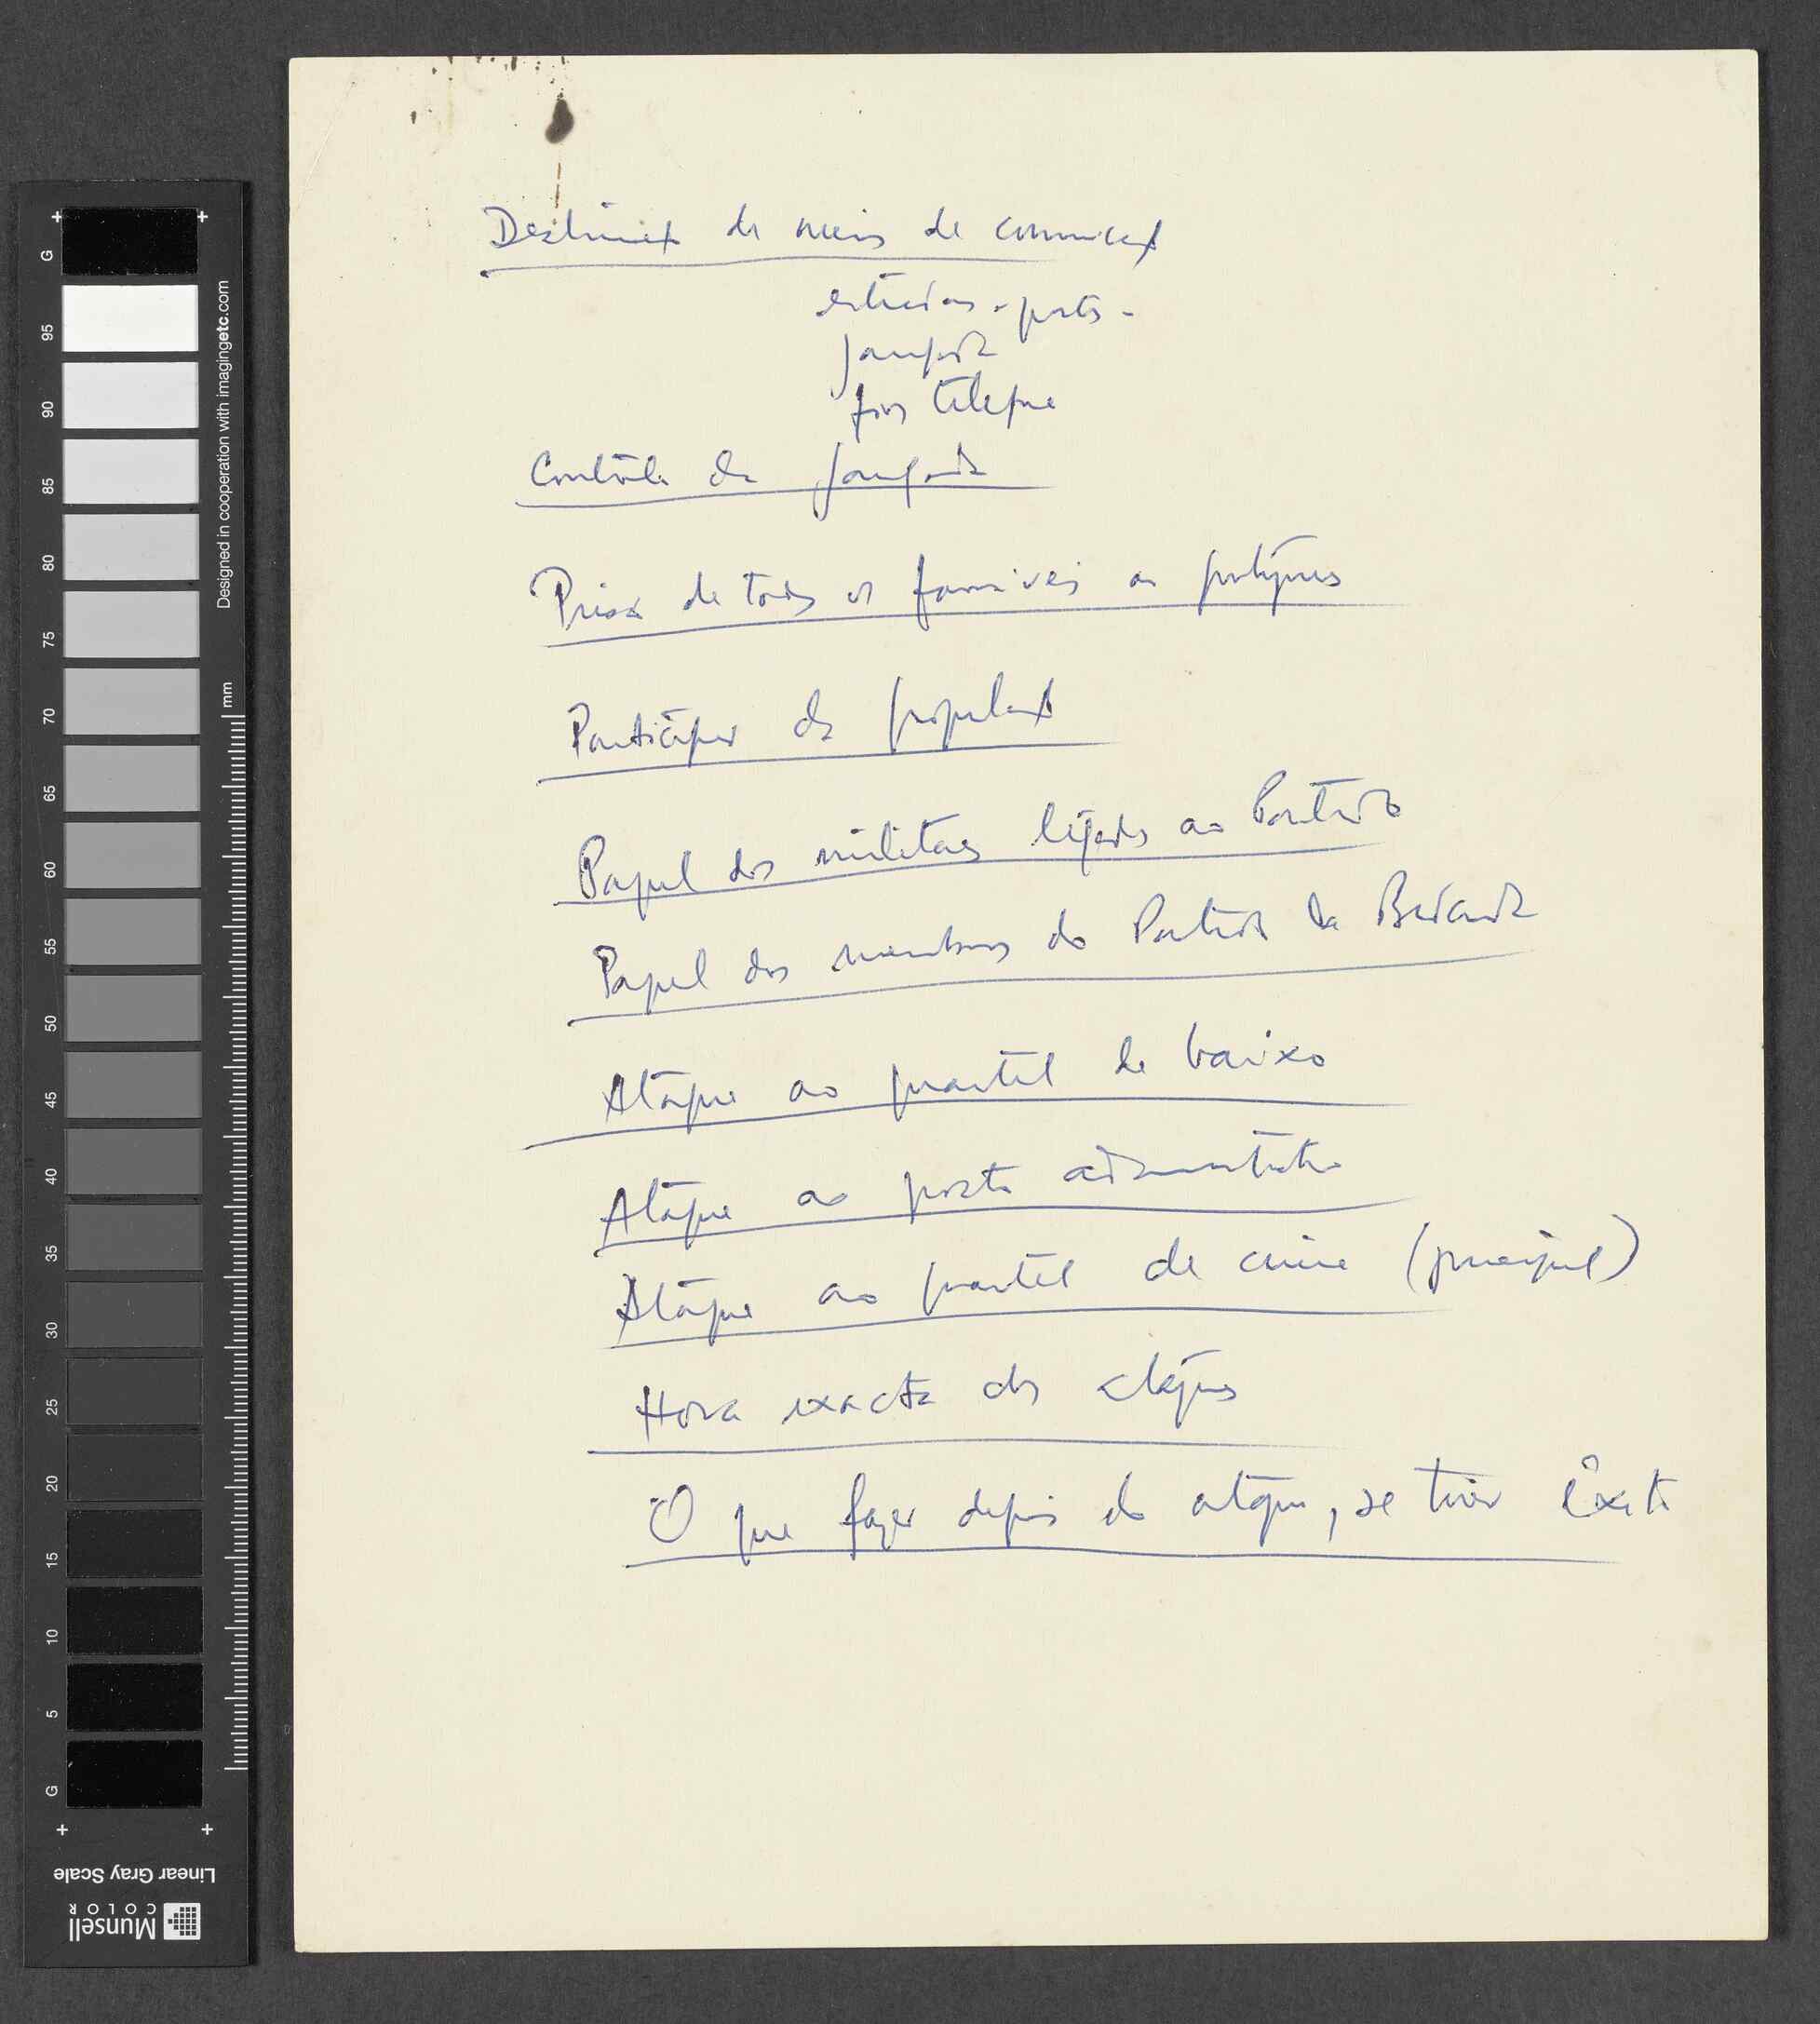 Destruição de meios de comunicação
estradas - portos -
jangada
fios telefone
Contrôle da jangada
Prisão de todos os favoráveis aos portugueses
Participação da população
Papel dos militares ligados ao Partido
Papel dos membros do Partido da Bedanda
Ataque ao quartel de baixo
Ataque ao posto administrativo
Ataque ao quartel de cima (principal)
Hora exacta dos ataques
O que fazer depois do ataque, se tiver êxito
G
95
90
85
80
75
70
65
60
55
50
45
40
35
30
25
20
15
10
5
G
Designed in cooperation with imagingetc.com
mm
Linear Gray Scale
Munsell
COLOR